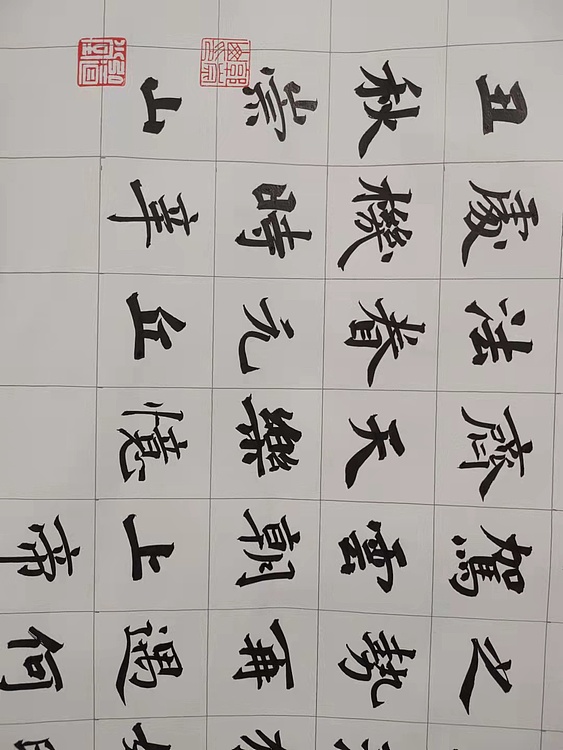 丑歲法齊駕之
秋機春天雲勢
崇時元樂朝再
山辛丘憶上遇
帝何